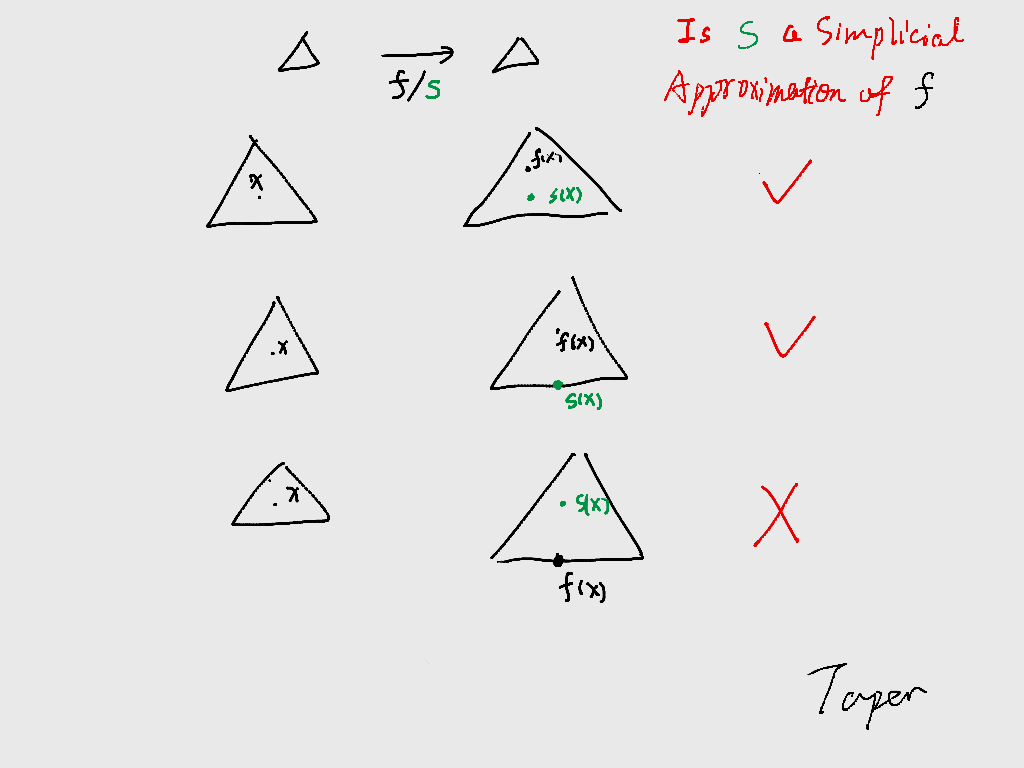 Is S a Simplicial
Approximation of f
f/s
x
f(x)
s(x)
x
f(x)
s(x)
x
s(x)
f(x)
Taper